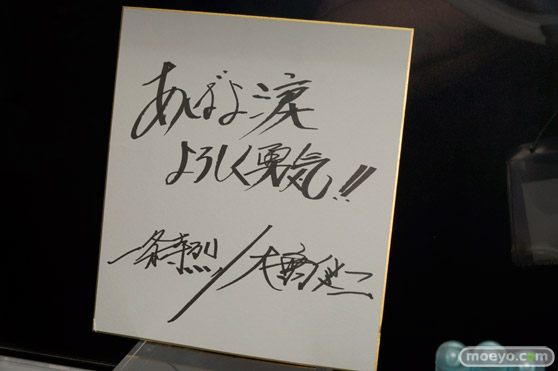 あばよ涙
よろしく勇気!!
一条寺烈/大葉健二
moeyo.com